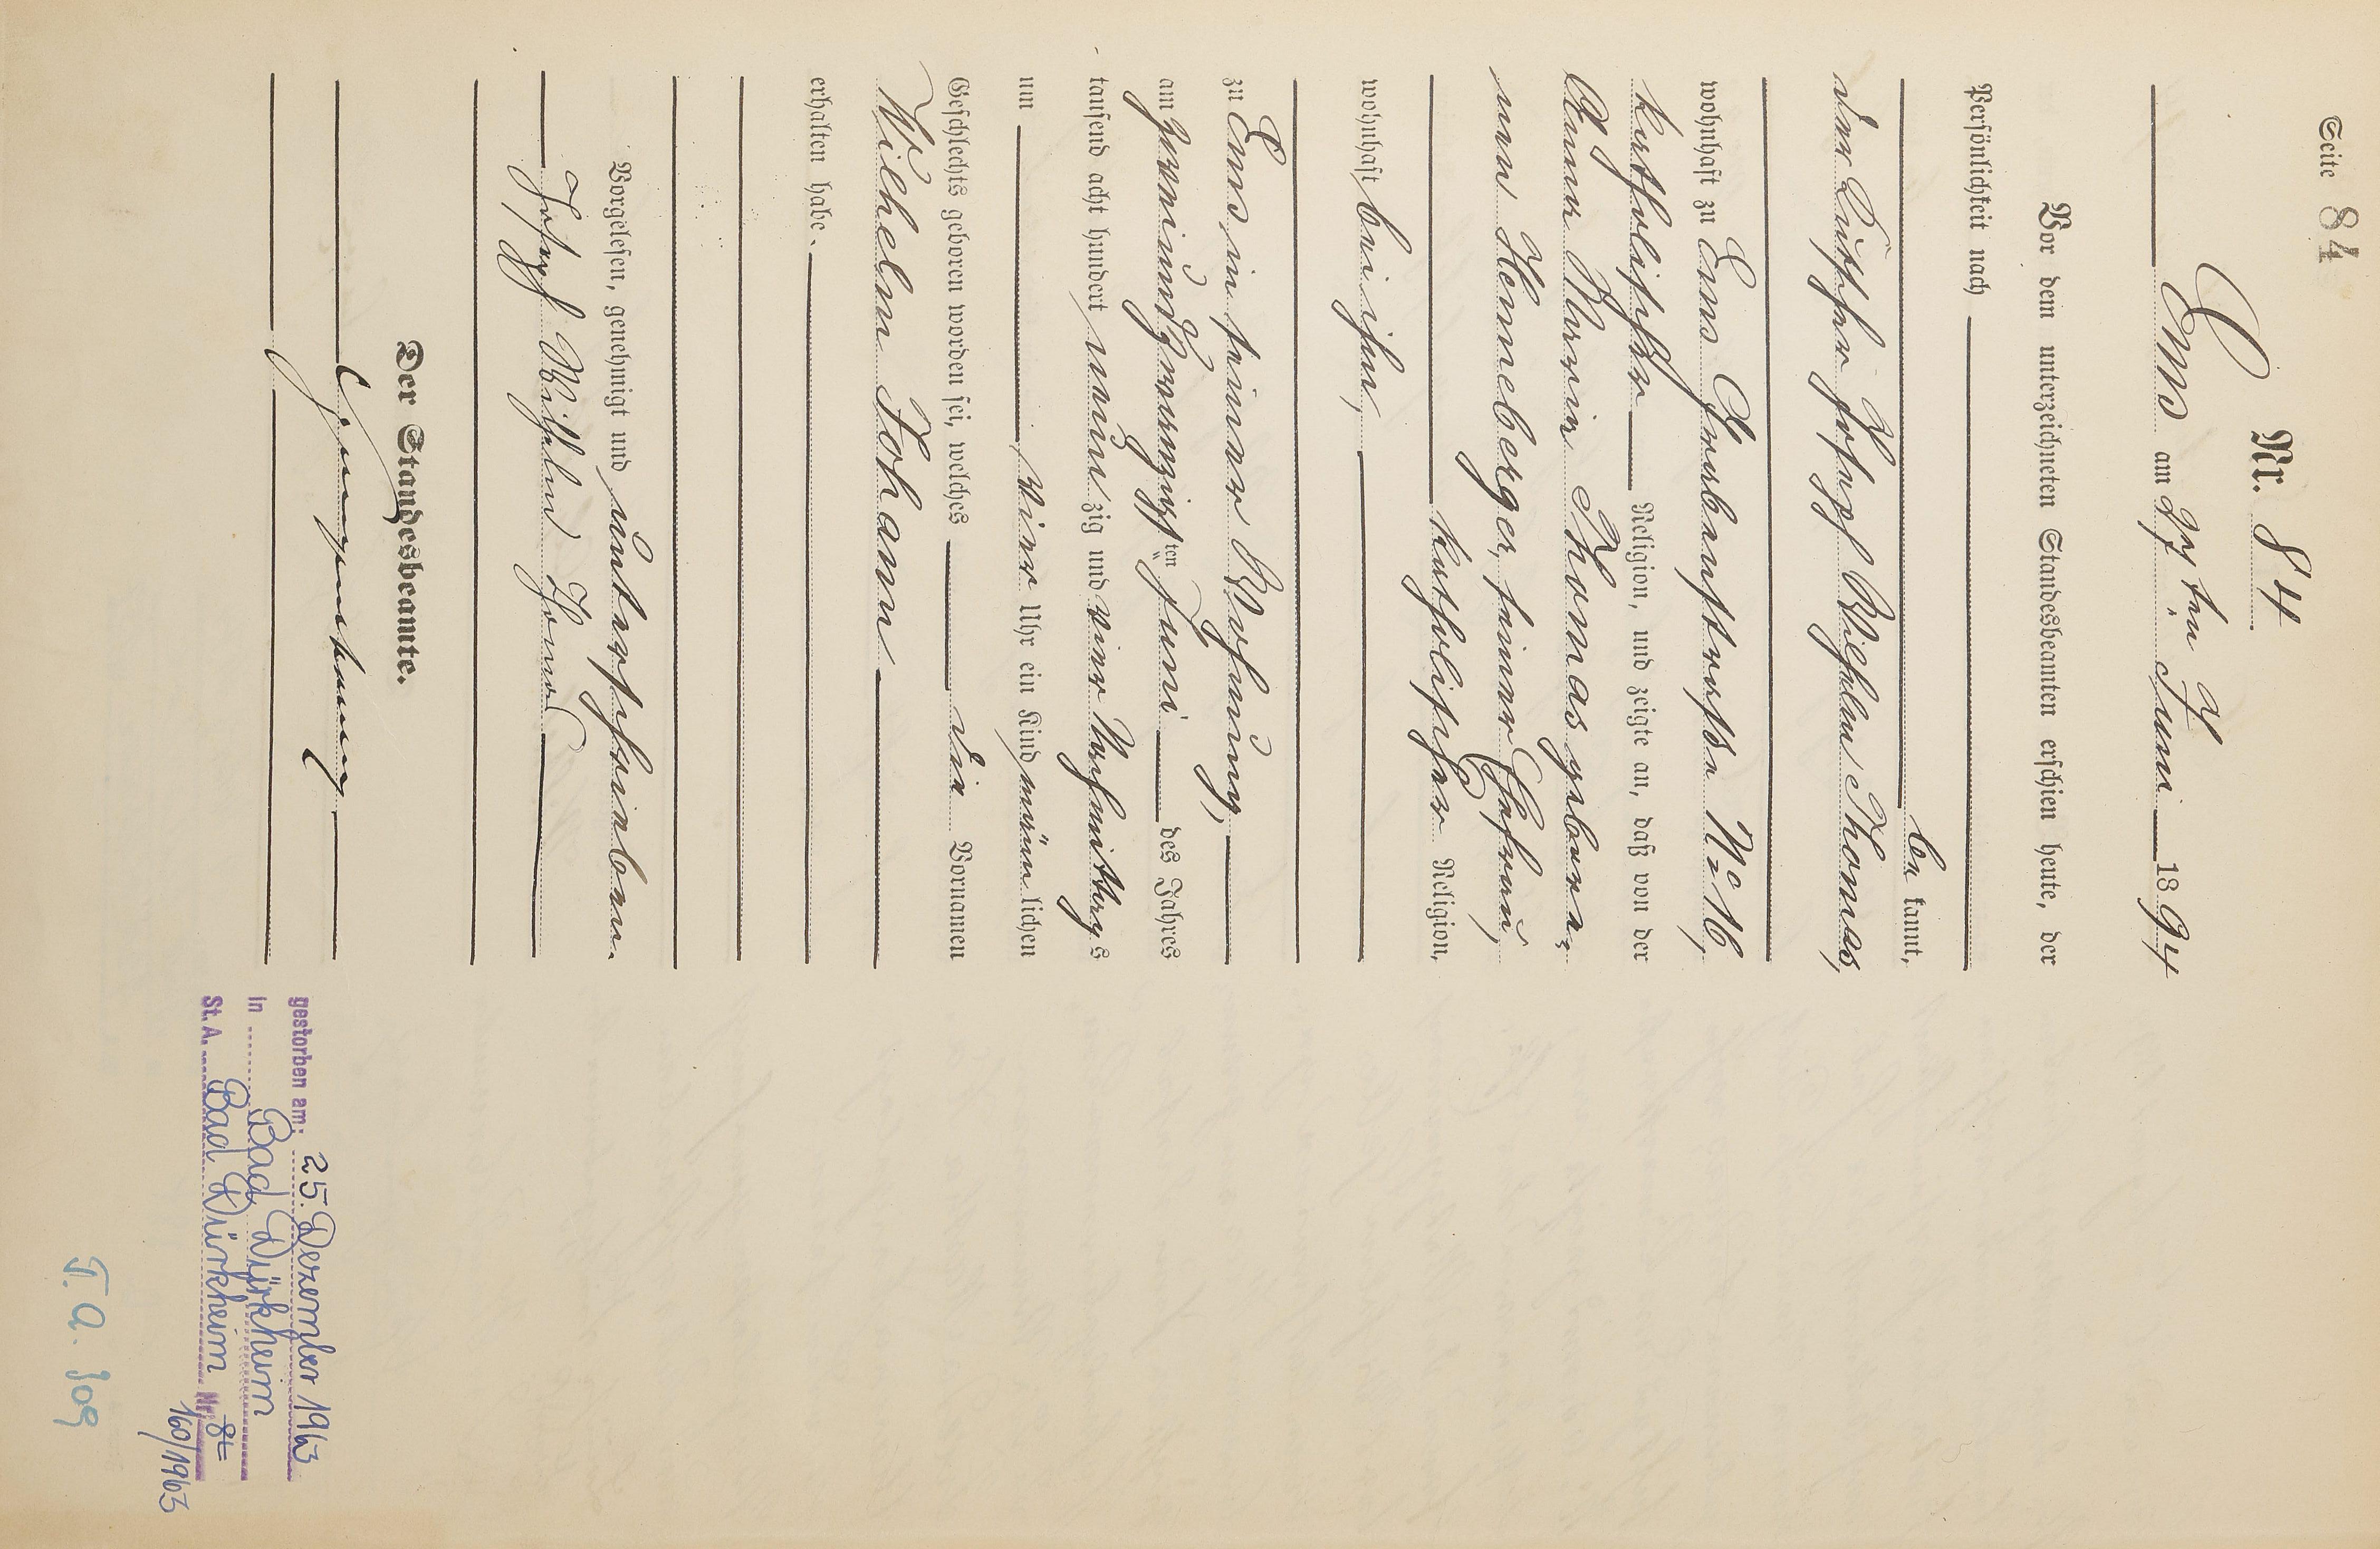 Seite 84
Nr. 84
Ems am 27ten Juni 1894
Vor dem unterzeichneten Standesbeamten erschien heute, der
Persönlichkeit nach
be kannt,
der Küfer Josef Wilhelm Thomas,
wohnhaft zu Ems Grabenstraße No 16,
katholischer Religion, und zeigte an, daß von der
Anna Maria Thomas gebore-
nen Henneberger, seiner Ehefrau,
katholischer Religion,
wohnhaft bei ihm,
zu Ems, in seiner Wohnung,
am zweiundzwanzigsten Juni des Jahres
tausend acht hundert neunzig und vier Nachmittags
um vier Uhr ein Kind männlichen
Geschlechts geboren worden sei, welches die Vornamen
Wilhelm Johann
erhalten habe.
Vorgelesen, genehmigt und unterschrieben.
Josef Wilhelm Thomas
Der Standesbeamte.
gestorben am: 25. Dezember 1963
in Bad Dürkheim
St. A. Bad Dürkheim Nr.
160/1963
T. a. 109